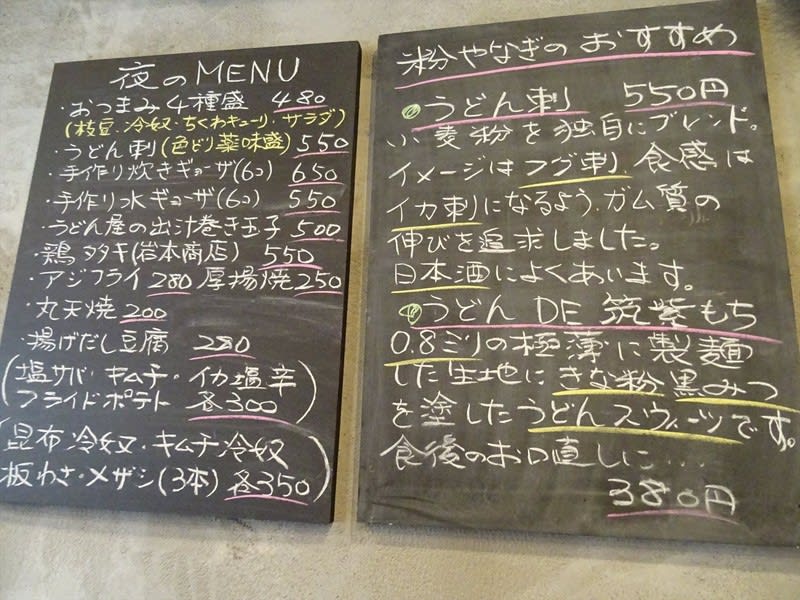 夜のMENU
・おつまみ4種盛 480
(枝豆・冷奴・ちくわキューリ・サラダ)
・うどん刺(色どり薬味盛) 550
・手作り炊きギョーザ(6コ) 650
・手作り水ギョーザ(6コ) 550
・うどん屋の出汁巻き玉子 500
・鶏タタキ(岩本商店) 550
・アジフライ 280 厚揚焼 250
・丸天焼 200
・揚げだし豆腐 280
(塩サバ・キムチ・イカ塩辛
フライドポテト 各300)
(昆布冷奴・キムチ冷奴
板わさ・メザシ(3本) 各350)
粉やなぎのおすすめ
うどん刺 550円
小麦粉を独自にブレンド。
イメージはフグ刺 食感は
イカ刺になるよう、ガム質の
伸びを追求しました。
日本酒によくあいます。
うどん DE 筑紫もち
0.8ミリの極薄に製麺
した生地にきな粉黒みつ
を塗したうどんスウィーツです。
食後のお口直しに・・・
380円